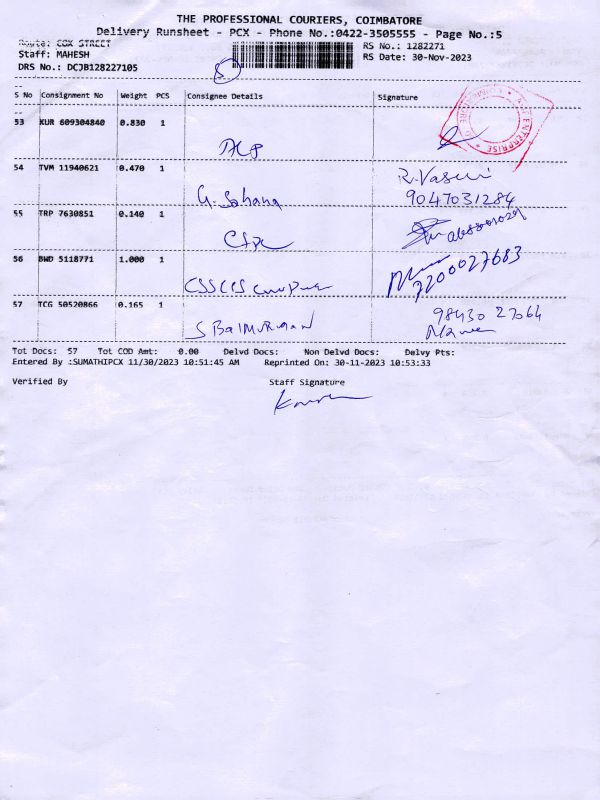 THE PROFESSIONAL COURIERS, COIMBATORE
Delivery Runsheet - PCX - Phone No.:0422-3505555 - Page No.:5
Route: CGX STREET
RS No.: 1282271
Staff: MAHESH
RS Date: 30-Nov-2023
DRS No.: DCJB128227105
5
S No Consignment No Weight PCS Consignee Details Signature
53 KUR 609304840 0.830 1
54 TVM 11940621 0.470 1
R. Vasuki
G. Sahana 9047031284
55 TRP 7630851 0.140 1
56 BWD 5118771 1.000 1
7200027683
57 TCG 50520866 0.165 1
98430 27064
S Balmurugan
Tot Docs: 57 Tot COD Amt: 0.00 Delvd Docs: Non Delvd Docs: Delvy Pts:
Entered By :SUMATHIPCX 11/30/2023 10:51:45 AM Reprinted On: 30-11-2023 10:53:33
Verified By Staff Signature